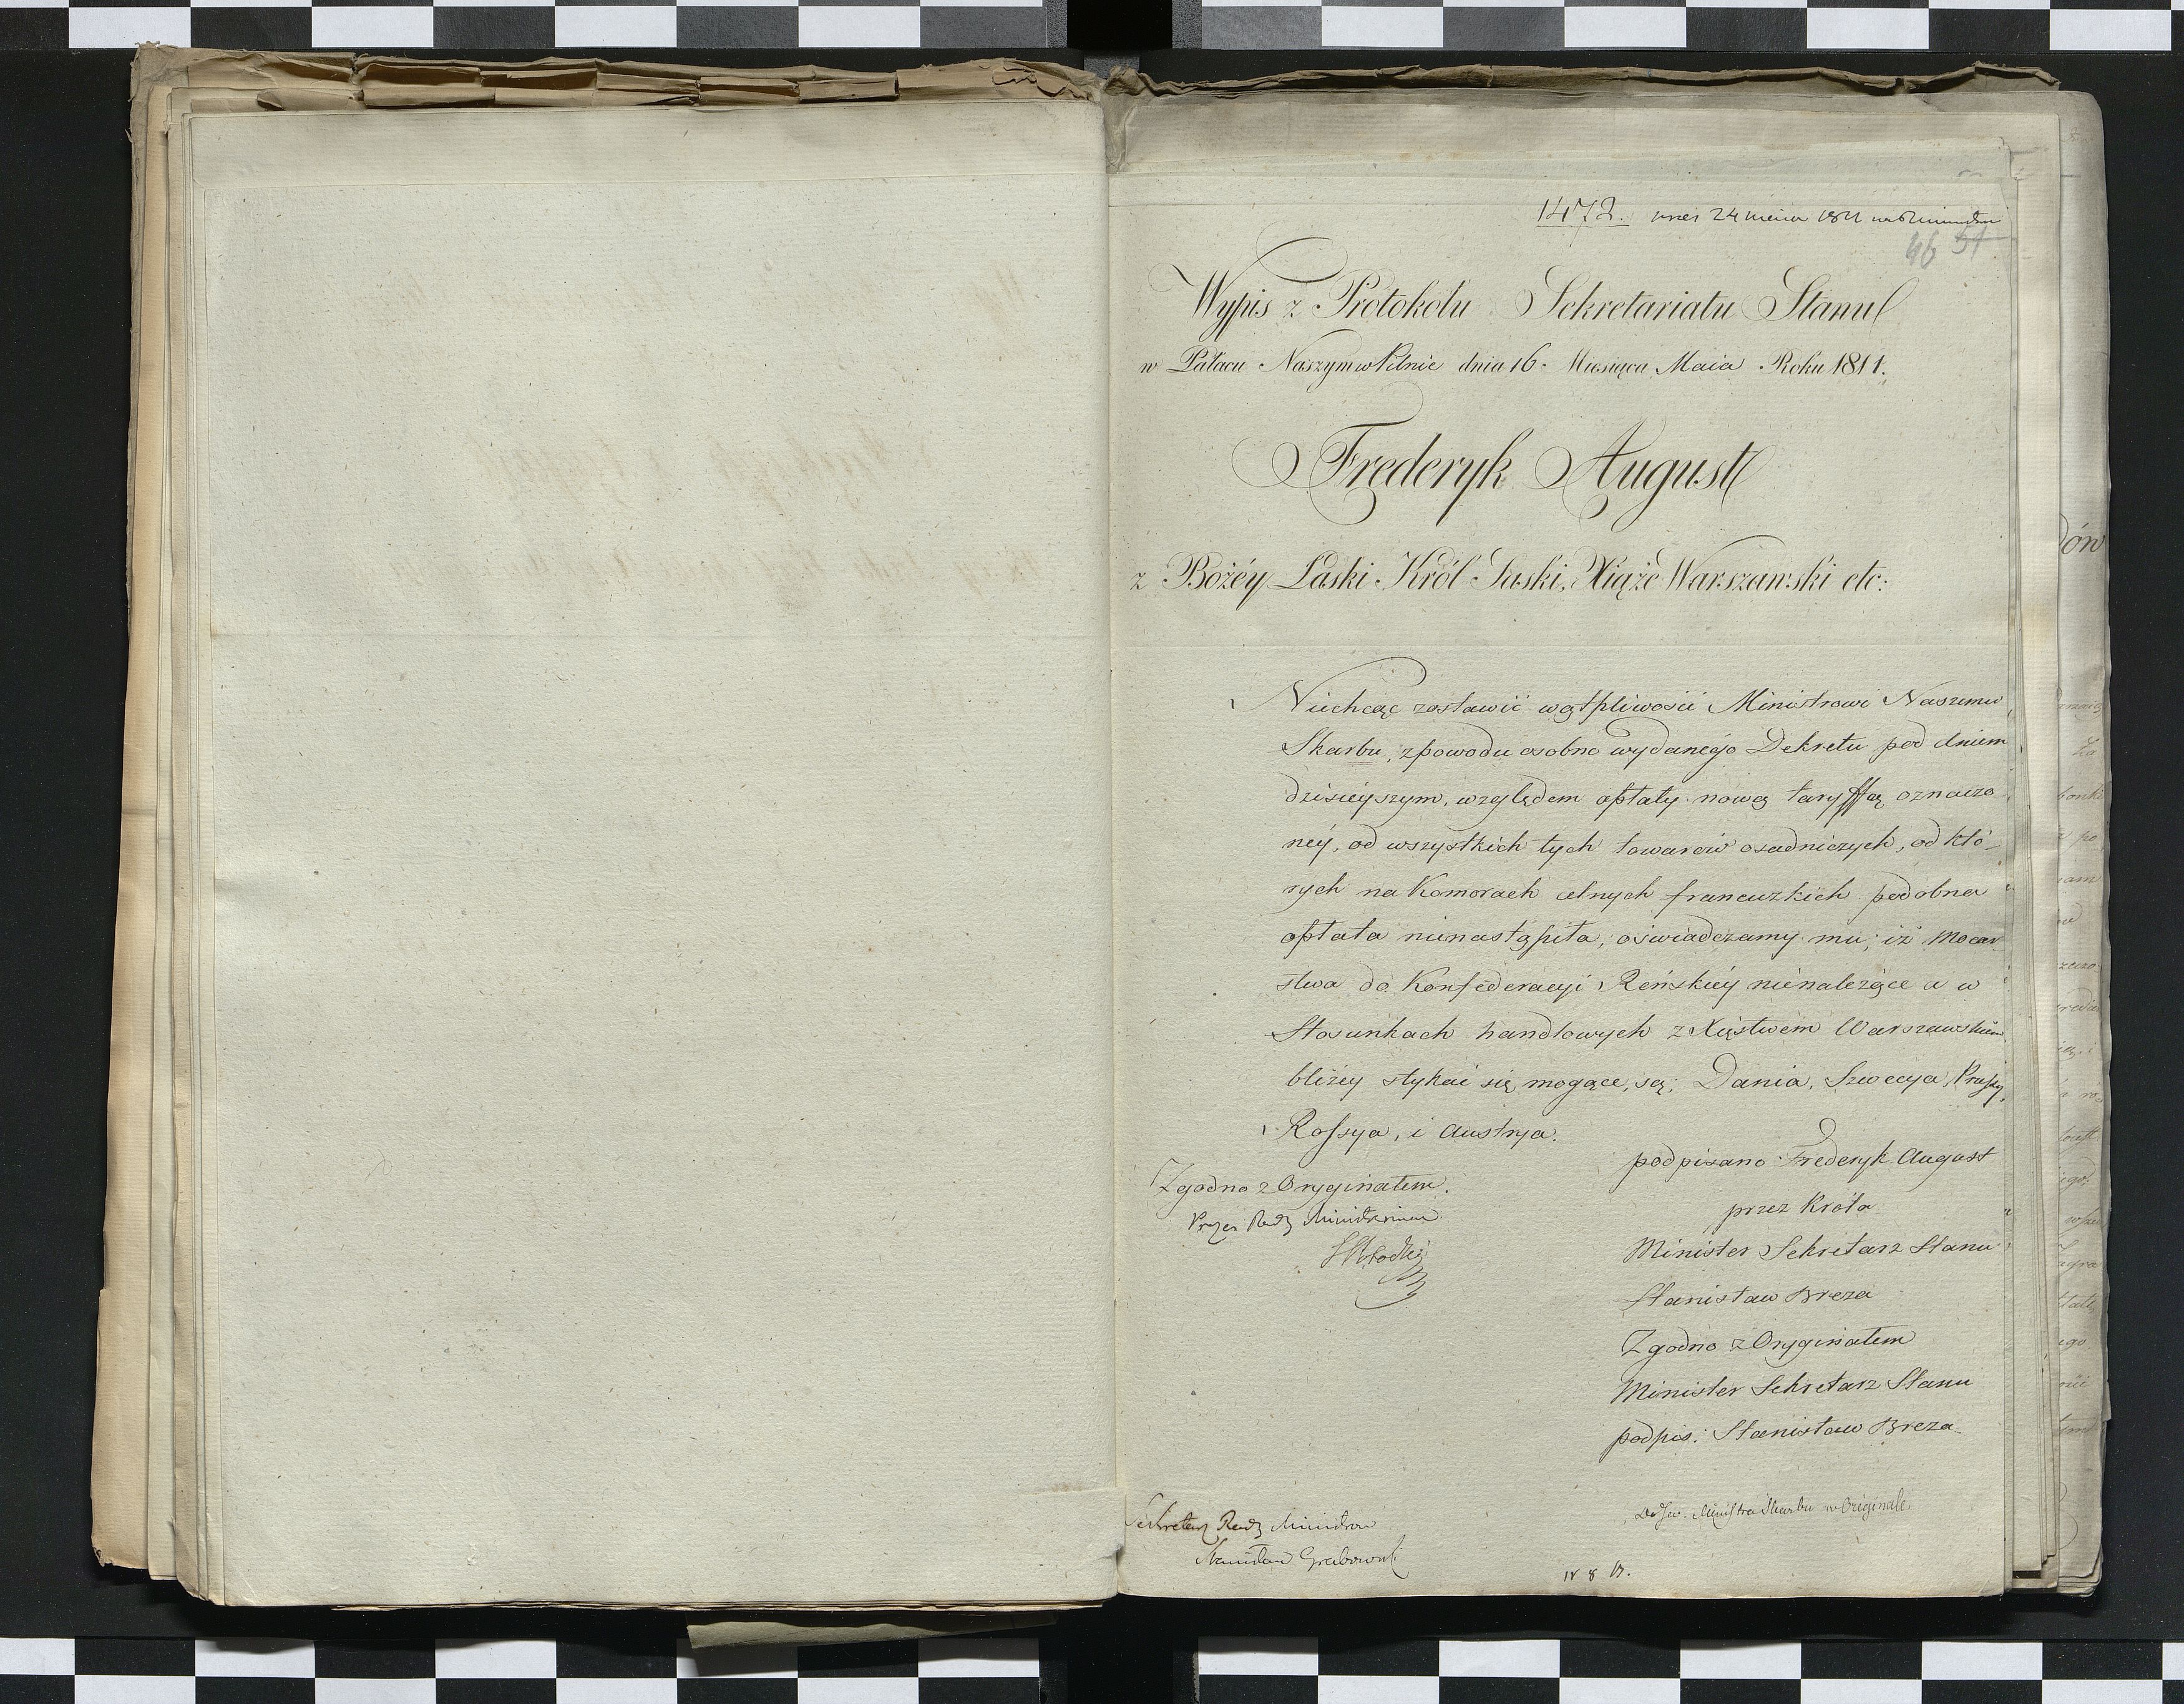 1472. 24 1811
46 51
Wypis z Protokołu Sekretariatu Stanu
w Pałacu Naszym w Pilnic dnia 16. Miesiąca Maia Roku 1811.
Frederyk August
z Bożéy Łaski Król Saski, Xiąże Warszawski etc:
Niechcąc zostawić wątpliwości Ministrowi Naszemu
Skarbu, z powodu osobno wydanego Dekretu pod dniem
dzisieyszym, względem opłaty nową taryffą oznaczo
néy, od wszystkich tych towarów osadniczych, od któ-
rych na Komorach celnych francuzkich podobna
opłata nienastąpiła, oświadczamy mu, iż mocar
stwa do Konfederacyi Reńskiéy nienależące a w
Stosunkach handlowych z Xięstwem Warszawskiem
bliżey stykać się mogące, są: Dania, Szwecya, Prussy,
Rossya, i Austrya.
podpisano Frederyk August
przez Króla
Minister Sekretarz Stanu
Stanisław Breza
Zgodno z Oryginałem
Minister Sekretarz Stanu
podpis: Stanisław Breza
Zgodno z Oryginałem.
Prezes Rady Ministrów
Sekretarz Rady Ministrów
Stanisław Grabowski
Ministra Skarbu w Originale.